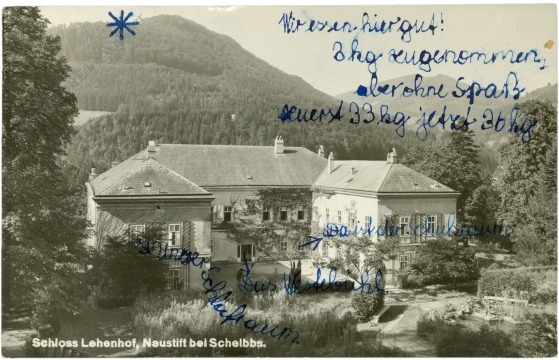 Wir essen hier gut!
3 kg zugenommen,
aber ohne Spaß
zuerst 33 kg jetzt 36 kg
Das ist der
Unser
Schlafraum
Das
Schloss Lehenhof, Neustift bei Scheibbs.